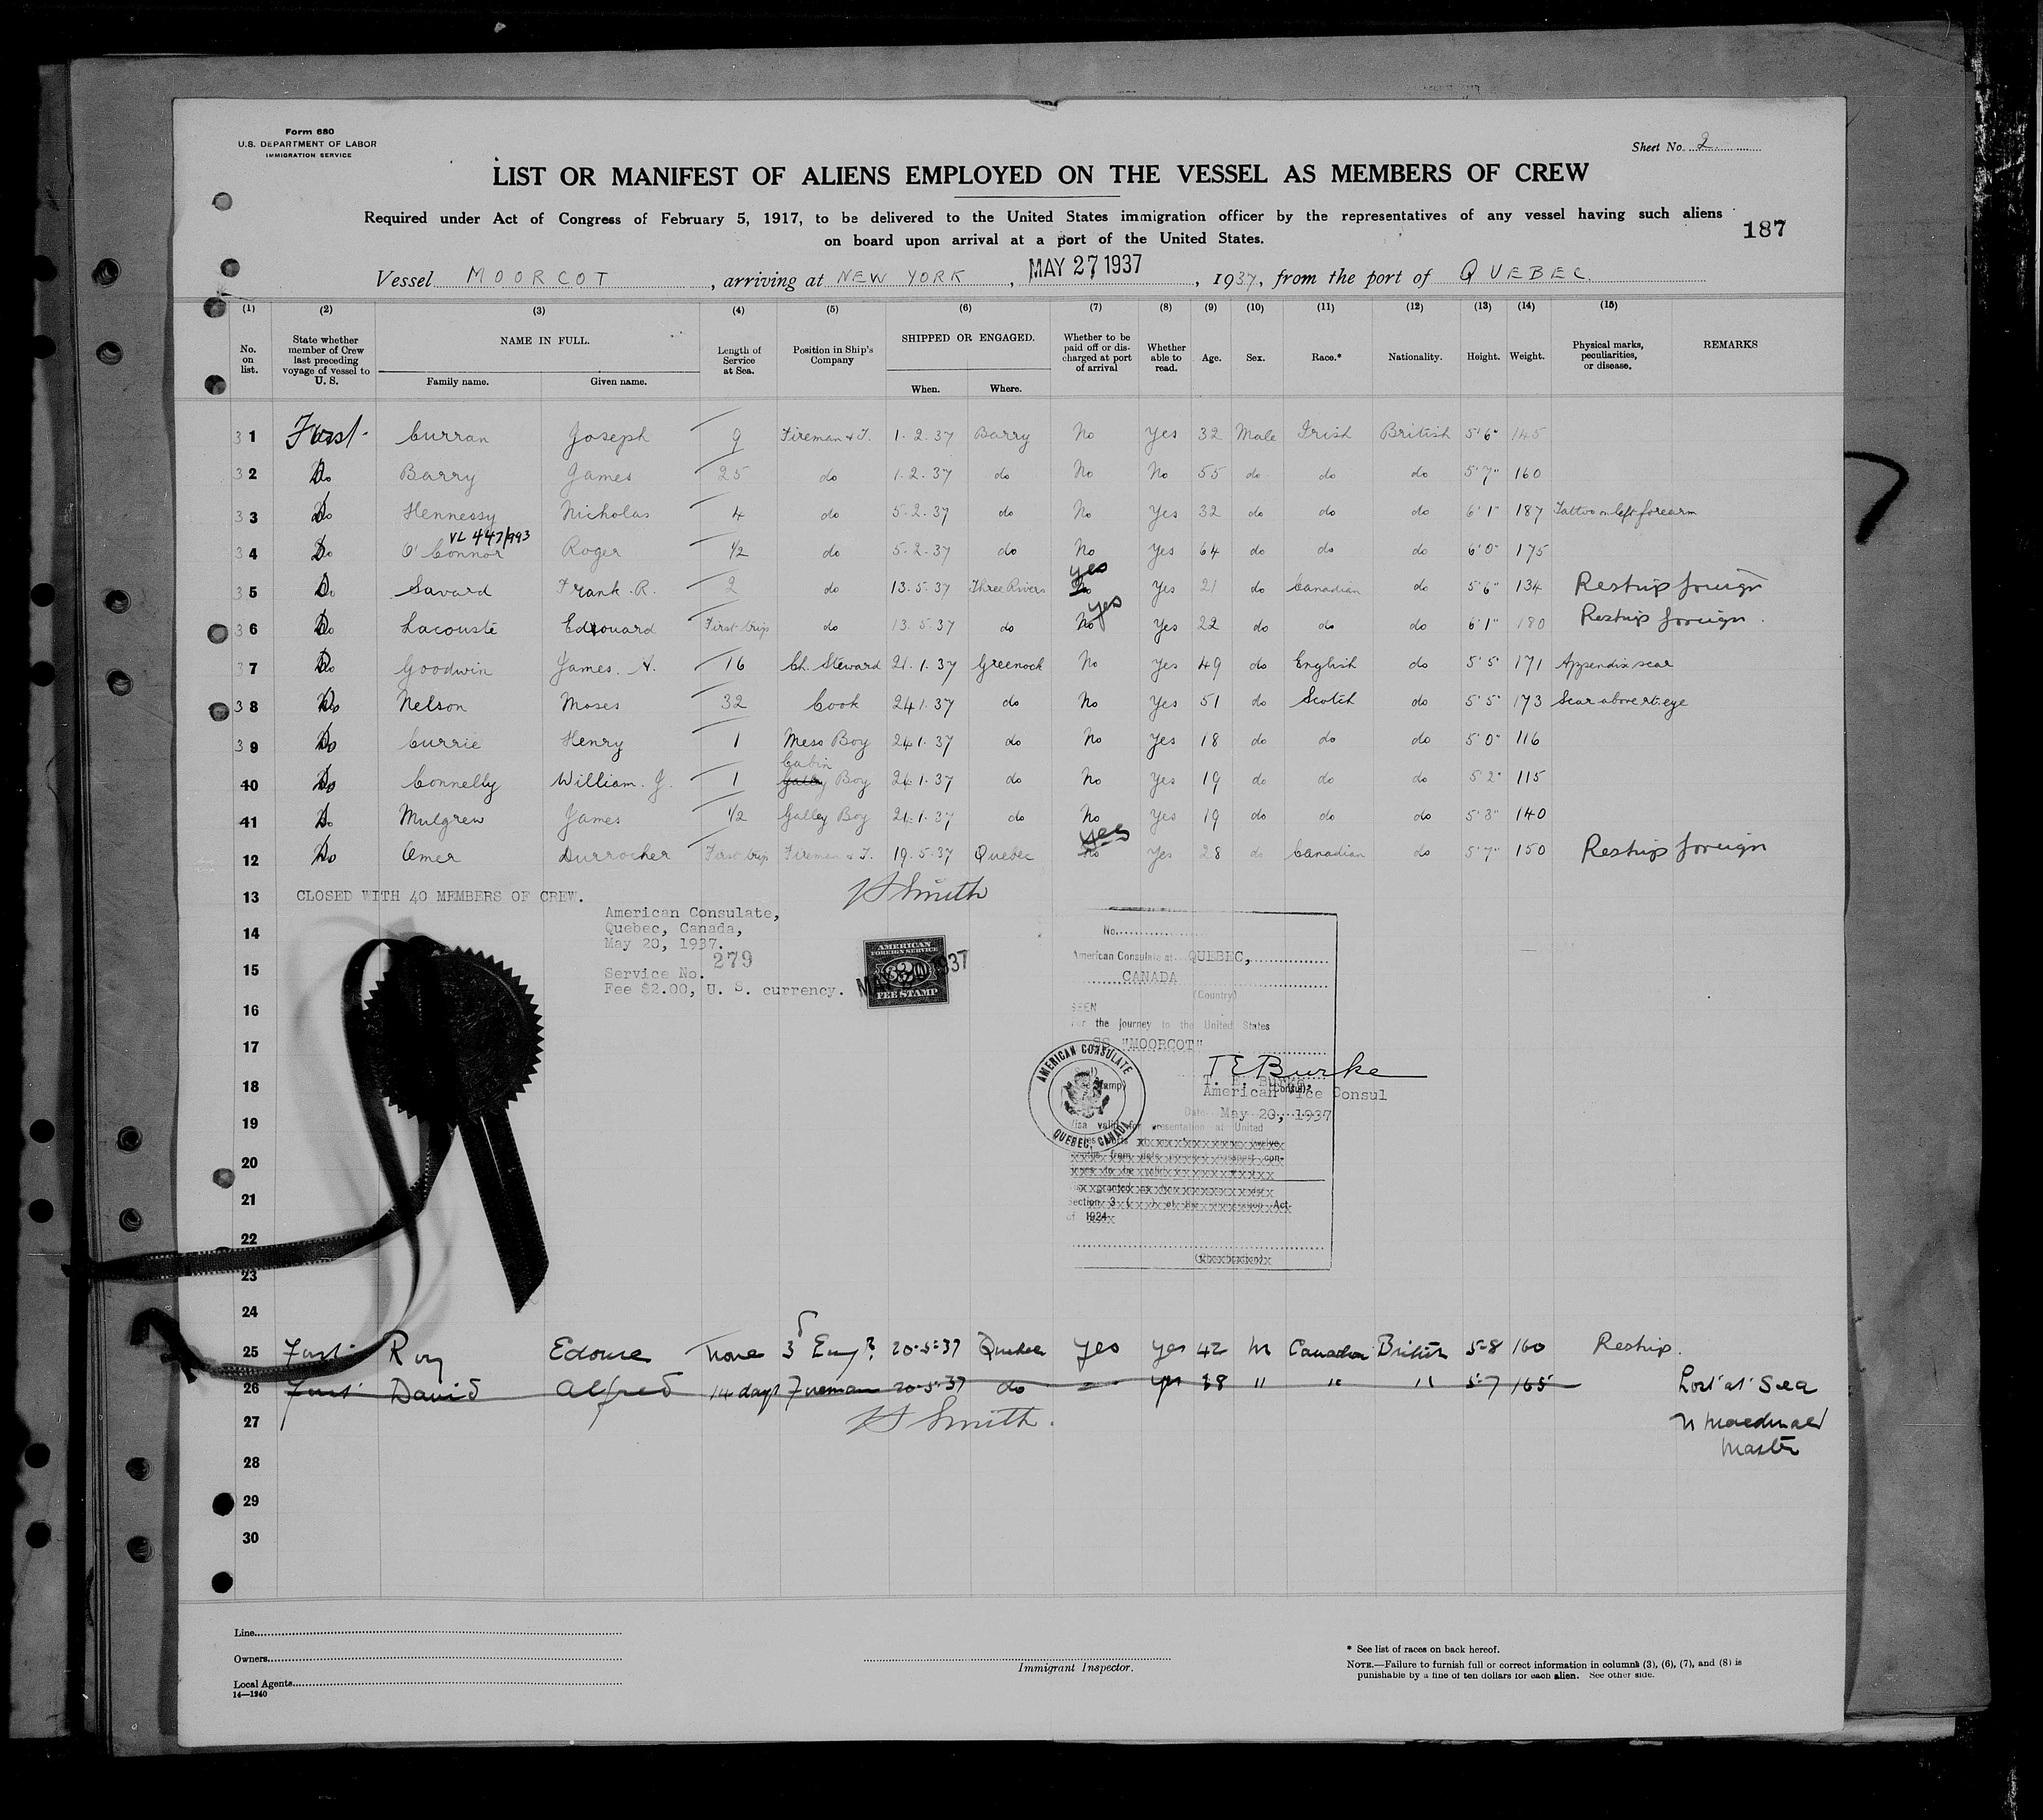 Form 680
U.S. DEPARTMENT OF LABOR
IMMIGRATION SERVICE
Sheet No. 2
LIST OR MANIFEST OF ALIENS EMPLOYED ON THE VESSEL AS MEMBERS OF CREW
Required under Act of Congress of February 5, 1917, to be delivered to the United States immigration officer by the representatives of any vessel having such aliens
on board upon arrival at a port of the United States.
187
Vessel MOORCOT, arriving at NEW YORK, MAY 27 1937, 1937, from the port of QUEBEC.
(1) (2) (3) (4) (5) (6) (7) (8) (9) (10) (11) (12) (13) (14) (15)
No. on list. State whether member of Crew last preceding voyage of vessel to U. S. NAME IN FULL. Family name. Given name. Length of Service at Sea. Position in Ship's Company SHIPPED OR ENGAGED. When. Where. Whether to be paid off or discharged at port of arrival Whether able to read. Age. Sex. Race.* Nationality. Height. Weight. Physical marks, peculiarities, or disease. REMARKS
31 First Curran Joseph 9 Fireman & T. 1.2.37 Barry No Yes 32 Male Irish British 5'6" 145
32 Do Barry James 25 do 1.2.37 do No No 55 do do do 5'7" 160
33 Do Hennessy Nicholas 4 do 5.2.37 do No Yes 32 do do do 6'1" 187 Tattoo on left forearm
VL 447/993
34 Do O'Connor Roger 1/2 do 5.2.37 do No Yes 64 do do do 6'0" 175
yes
35 Do Savard Frank. R. 2 do 13.5.37 Three Rivers No Yes 21 do Canadian do 5'6" 134 Reship foreign
yes
36 Do Lacouste Edouard First trip do 13.5.37 do No Yes 22 do do do 6'1" 180 Reship foreign.
37 Do Goodwin James. A. 16 Ch. Steward 21.1.37 Greenock No Yes 49 do English do 5'5" 171 Appendix scar
38 Do Nelson Moses 32 Cook 24.1.37 do No Yes 51 do Scotch do 5'5" 173 Scar above rt. eye
39 Do Currie Henry 1 Mess Boy 24.1.37 do No Yes 18 do do do 5'0" 116
Cabin
40 Do Connelly William. J. 1 Galley Boy 24.1.37 do No Yes 19 do do do 5'2" 115
41 Do Mulgrew James 1/2 Galley Boy 24.1.37 do No Yes 19 do do do 5'3" 140
yes
12 Do Omer Durrocher First trip Fireman & T. 19.5.37 Quebec No Yes 28 do Canadian do 5'7" 150 Reship foreign
13 CLOSED WITH 40 MEMBERS OF CREW. Smith
American Consulate,
Quebec, Canada,
May 20, 1937.
Service No. 279
Fee $2.00, U. S. currency.
AMERICAN
FOREIGN SERVICE
FEE STAMP
MAY 20 1937
No.
American Consulate at QUEBEC,
CANADA
(Country)
SEEN
For the journey to the United States
SS "MOORCOT"
T E Burke
T. E. Burke,
American Vice Consul
Date May 20, 1937
AMERICAN CONSULATE
QUEBEC, CANADA
Visa valid for presentation at United
Section 3 ( ) of the Act
of 1924
14
15
16
17
18
19
20
21
22
23
24
25 First Roy Edouse None 3 Eng. 20.5.37 Quebec yes yes 42 M Canadian British 5-8 160 Reship.
26 First David Alfred 14 days Fireman 20.5.37 do yes 28 " " " 5-7 165 Lost at Sea
27 Smith. Macdonald
Master
28
29
30
Line
Owners
Local Agents
14—1240
Immigrant Inspector.
* See list of races on back hereof.
NOTE.—Failure to furnish full or correct information in columns (3), (6), (7), and (8) is
punishable by a fine of ten dollars for each alien. See other side.